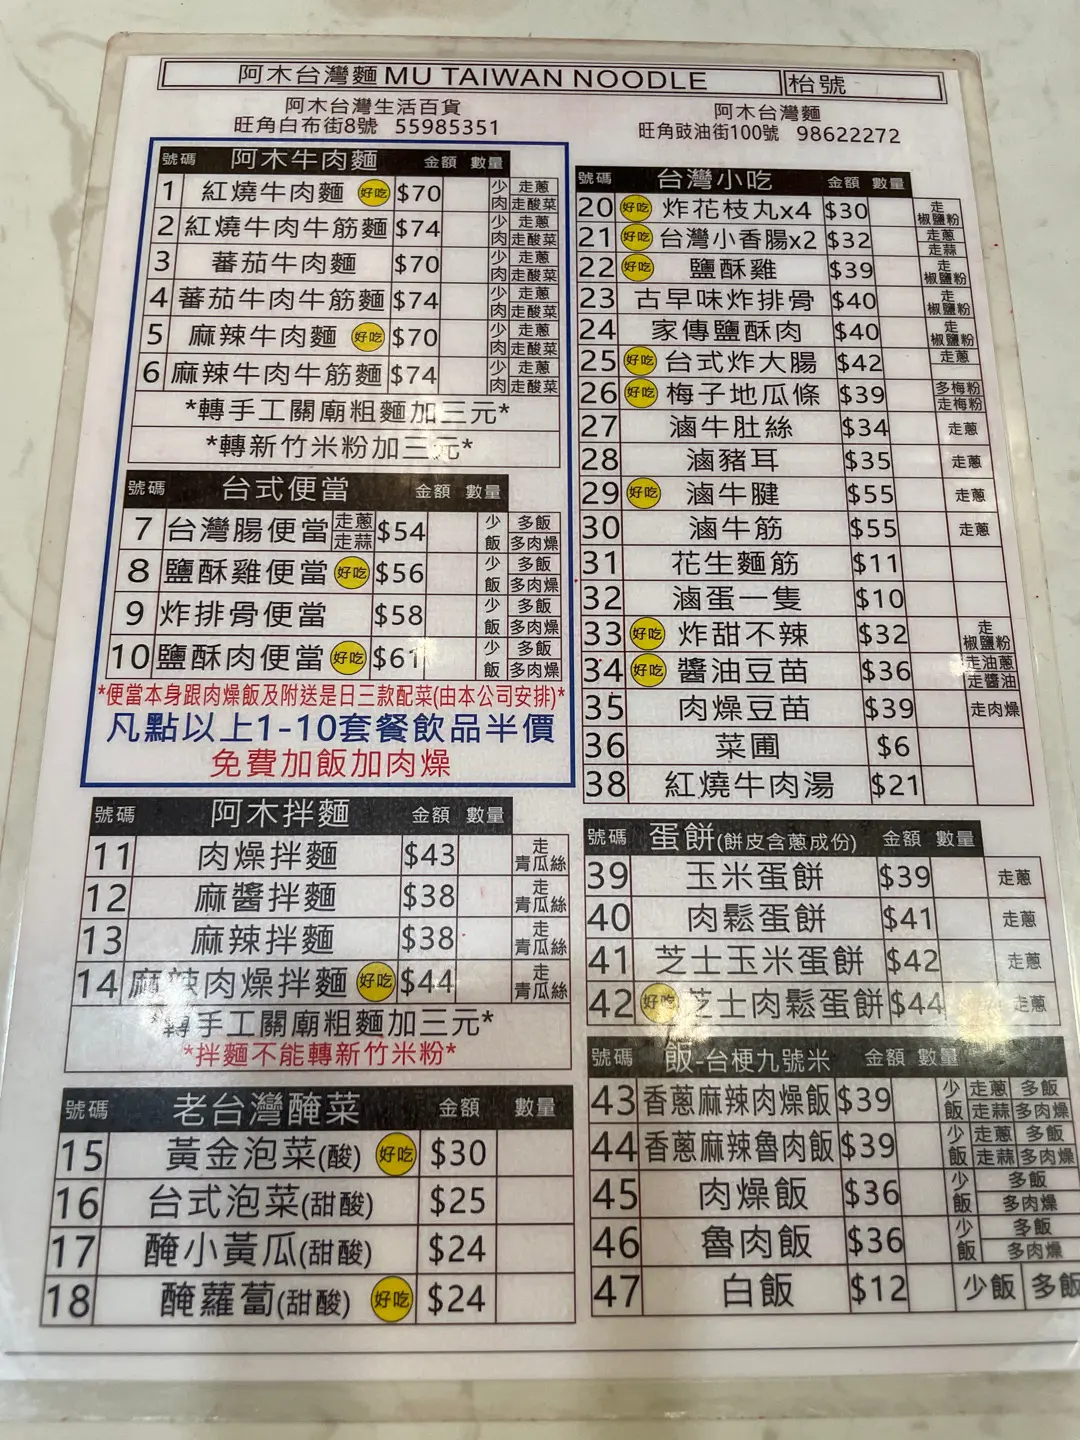 阿木台灣麵 MU TAIWAN NOODLE 枱號
阿木台灣生活百貨
旺角白布街8號 55985351
阿木台灣麵
旺角豉油街100號 98622272
號碼 阿木牛肉麵 金額 數量
1 紅燒牛肉麵 好吃 $70 少肉 走蔥 走酸菜
2 紅燒牛肉牛筋麵 $74 少肉 走蔥 走酸菜
3 蕃茄牛肉麵 $70 少肉 走蔥 走酸菜
4 蕃茄牛肉牛筋麵 $74 少肉 走蔥 走酸菜
5 麻辣牛肉麵 好吃 $70 少肉 走蔥 走酸菜
6 麻辣牛肉牛筋麵 $74 少肉 走蔥 走酸菜
*轉手工關廟粗麵加三元*
*轉新竹米粉加三元*
號碼 台式便當 金額 數量
7 台灣腸便當 走蔥 走蒜 $54 少飯 多飯 多肉燥
8 鹽酥雞便當 好吃 $56 少飯 多飯 多肉燥
9 炸排骨便當 $58 少飯 多飯 多肉燥
10 鹽酥肉便當 好吃 $61 少飯 多飯 多肉燥
*便當本身跟肉燥飯及附送是日三款配菜(由本公司安排)*
凡點以上1-10套餐飲品半價
免費加飯加肉燥
號碼 阿木拌麵 金額 數量
11 肉燥拌麵 $43 走青瓜絲
12 麻醬拌麵 $38 走青瓜絲
13 麻辣拌麵 $38 走青瓜絲
14 麻辣肉燥拌麵 好吃 $44 走青瓜絲
*轉手工關廟粗麵加三元*
*拌麵不能轉新竹米粉*
號碼 老台灣醃菜 金額 數量
15 黃金泡菜(酸) 好吃 $30
16 台式泡菜(甜酸) $25
17 醃小黃瓜(甜酸) $24
18 醃蘿蔔(甜酸) 好吃 $24
號碼 台灣小吃 金額 數量
20 好吃 炸花枝丸x4 $30 走椒鹽粉
21 好吃 台灣小香腸x2 $32 走蔥 走蒜
22 好吃 鹽酥雞 $39 走椒鹽粉
23 古早味炸排骨 $40 走椒鹽粉
24 家傳鹽酥肉 $40 走椒鹽粉
25 好吃 台式炸大腸 $42 走蔥
26 好吃 梅子地瓜條 $39 多梅粉 走梅粉
27 滷牛肚絲 $34 走蔥
28 滷豬耳 $35 走蔥
29 好吃 滷牛腱 $55 走蔥
30 滷牛筋 $55 走蔥
31 花生麵筋 $11
32 滷蛋一隻 $10
33 好吃 炸甜不辣 $32 走椒鹽粉
34 好吃 醬油豆苗 $36 走油蔥 走醬油
35 肉燥豆苗 $39 走肉燥
36 菜圃 $6
38 紅燒牛肉湯 $21
號碼 蛋餅(餅皮含蔥成份) 金額 數量
39 玉米蛋餅 $39 走蔥
40 肉鬆蛋餅 $41 走蔥
41 芝士玉米蛋餅 $42 走蔥
42 好吃 芝士肉鬆蛋餅 $44 走蔥
號碼 飯-台梗九號米 金額 數量
43 香蔥麻辣肉燥飯 $39 少飯 走蔥 多飯 走蒜 多肉燥
44 香蔥麻辣魯肉飯 $39 少飯 走蔥 多飯 走蒜 多肉燥
45 肉燥飯 $36 少飯 多飯 多肉燥
46 魯肉飯 $36 少飯 多飯 多肉燥
47 白飯 $12 少飯 多飯